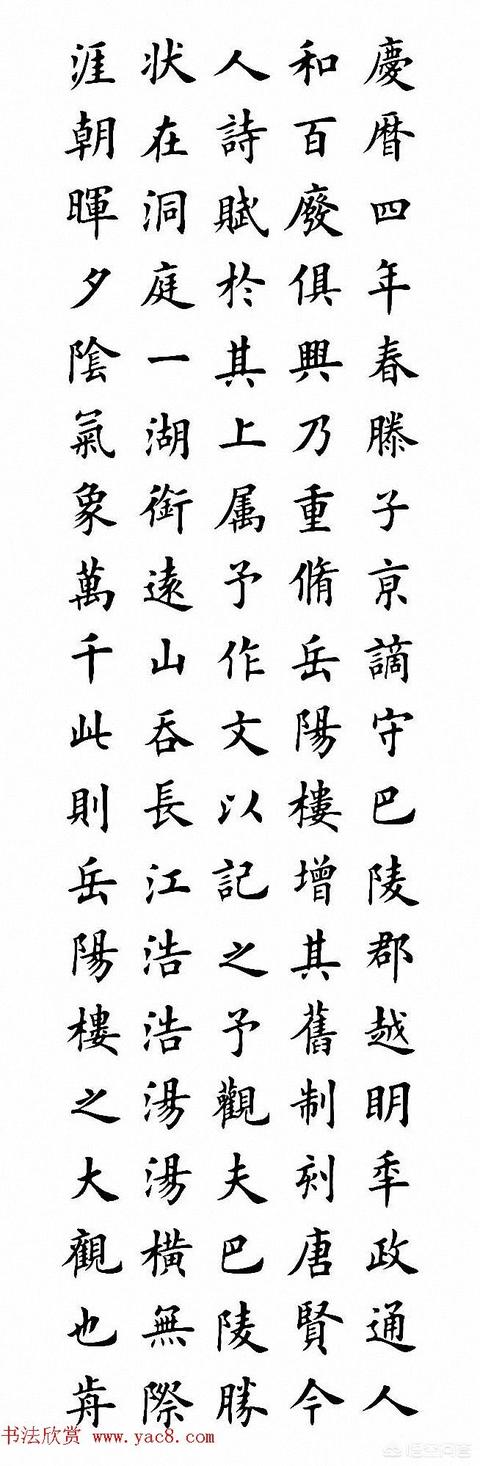 慶暦四年春滕子亰謫守巴陵郡越眀秊政通人
和百廢俱興乃重脩岳陽樓增其舊制刻唐賢今
人詩賦於其上属予作文以記之予觀夫巴陵勝
状在洞庭一湖銜遠山吞長江浩浩湯湯橫無際
涯朝暉夕陰氣象萬千此則岳陽樓之大觀也歬
书法欣赏 www.yac8.com
悟空问答